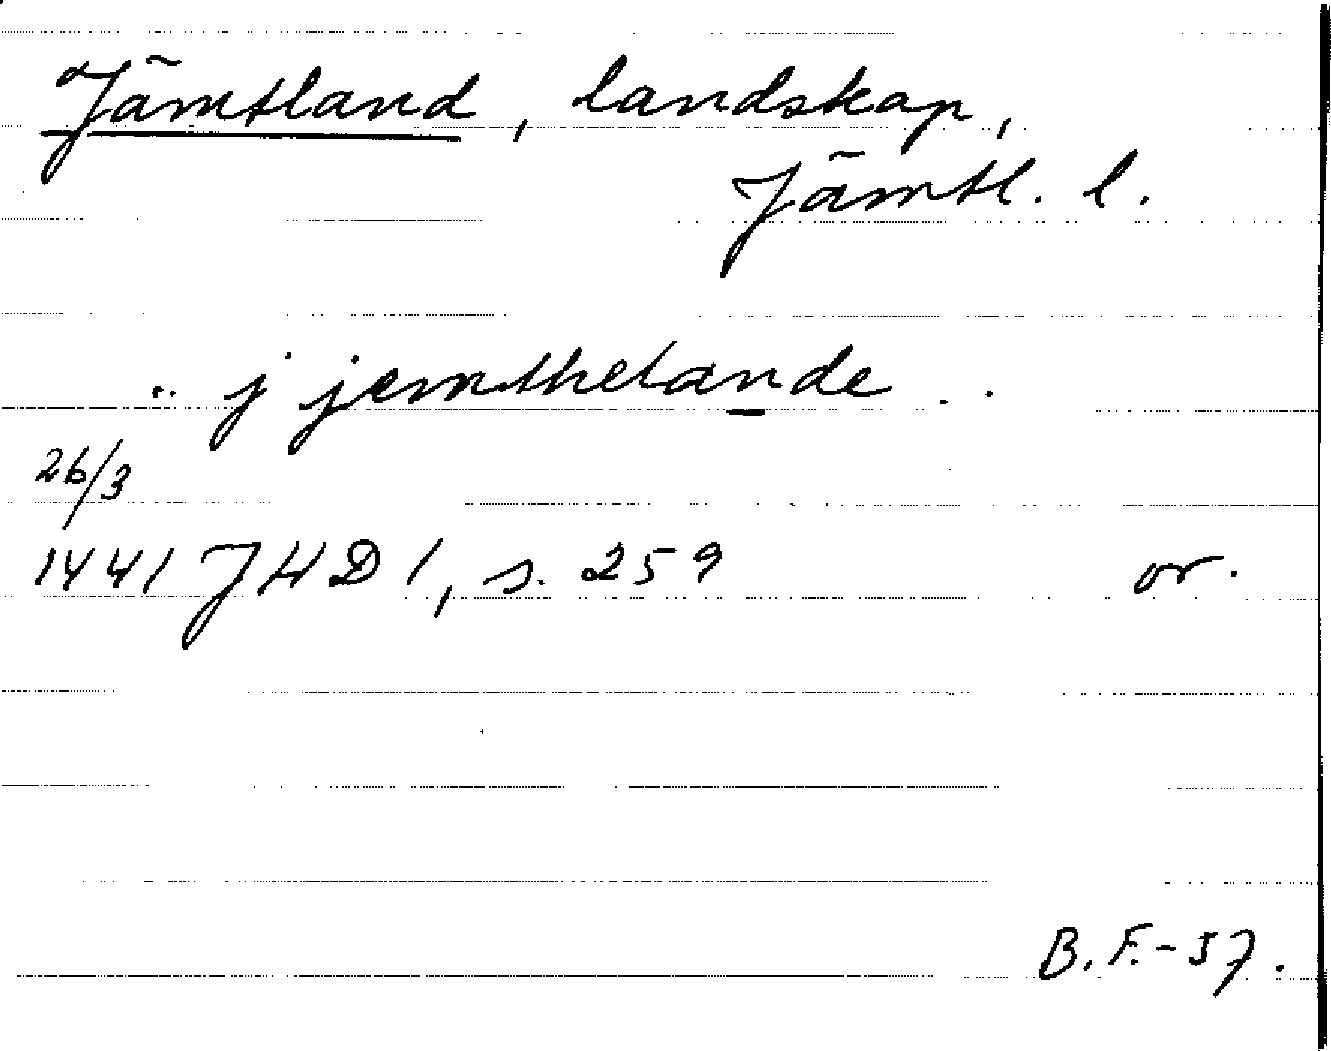 Jämtland, landskap,
Jämtl. l.
.. j jemthelande ..
26/3
1441 JHD 1, s. 259 or.
B.F.-57.